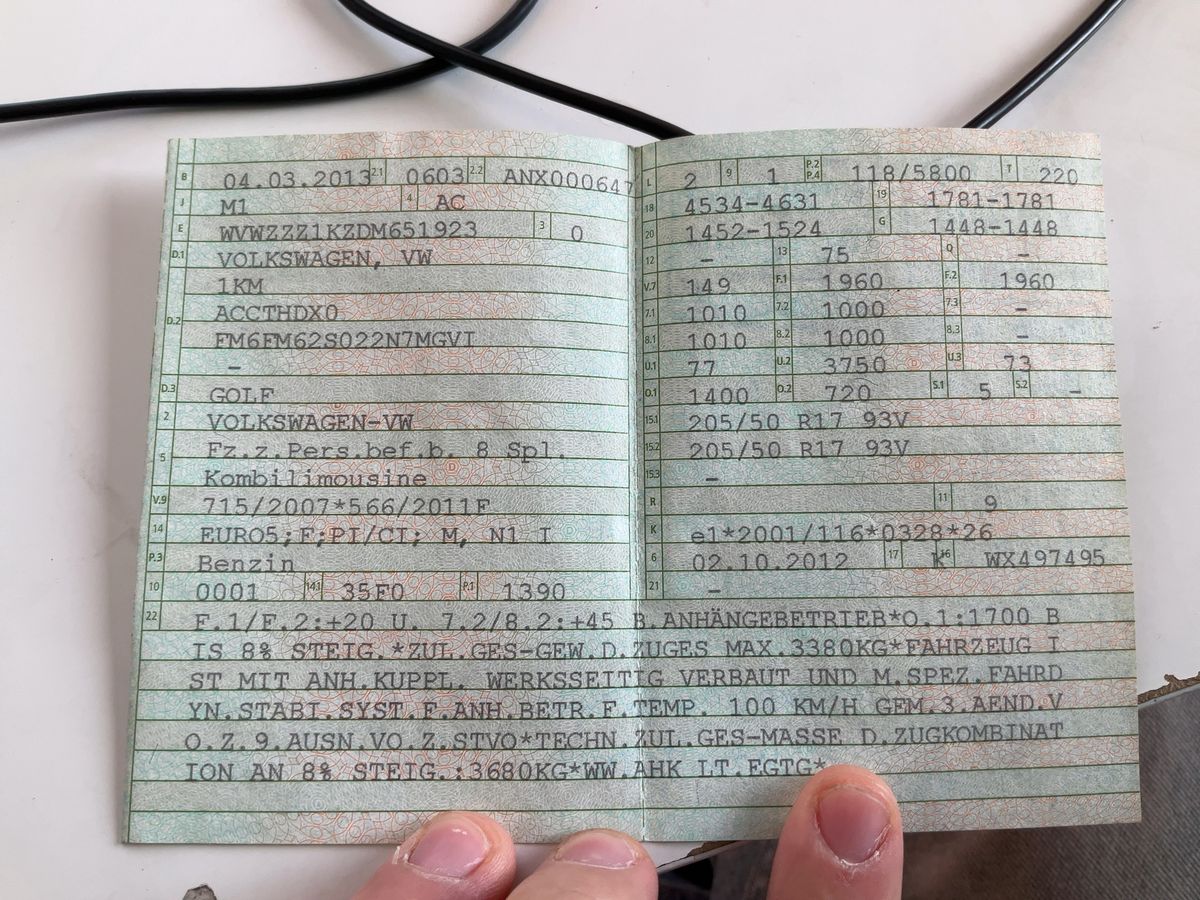 B 04.03.2013 2.1 0603 2.2 ANX000647
J M1 4 AC
E WVWZZZ1KZDM651923 3 0
D.1 VOLKSWAGEN, VW
1KM
D.2 ACCTHDX0
FM6FM62S022N7MGVI
-
D.3 GOLF
2 VOLKSWAGEN-VW
5 Fz.z.Pers.bef.b. 8 Spl.
Kombilimousine
V.9 715/2007*566/2011F
14 EURO5;F;PI/CI; M, N1 I
P.3 Benzin
10 0001 14.1 35F0 P.1 1390
L 2 9 1 P.2 P.4 118/5800 T 220
18 4534-4631 19 1781-1781
20 1452-1524 G 1448-1448
12 - 13 75 Q -
V.7 149 F.1 1960 F.2 1960
7.1 1010 7.2 1000 7.3 -
8.1 1010 8.2 1000 8.3 -
U.1 77 U.2 3750 U.3 73
O.1 1400 O.2 720 S.1 5 S.2 -
15.1 205/50 R17 93V
15.2 205/50 R17 93V
15.3 -
R 11 9
K e1*2001/116*0328*26
6 02.10.2012 17 k 16 WX497495
21 -
22 F.1/F.2:+20 U. 7.2/8.2:+45 B.ANHÄNGEBETRIEB*O.1:1700 B
IS 8% STEIG.*ZUL.GES-GEW.D.ZUGES MAX.3380KG*FAHRZEUG I
ST MIT ANH.KUPPL. WERKSSEITIG VERBAUT UND M.SPEZ.FAHRD
YN.STABI.SYST.F.ANH.BETR.F.TEMP. 100 KM/H GEM.3.AEND.V
O.Z.9.AUSN.VO.Z.STVO*TECHN.ZUL.GES-MASSE D.ZUGKOMBINAT
ION AN 8% STEIG.:3680KG*WW.AHK LT.EGTG*